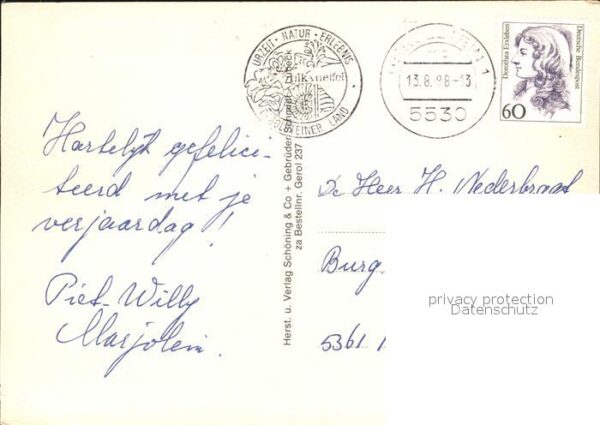 URZEIT · NATUR · ERLEBNIS
Vulkaneifel
GEROLSTEINER LAND
13.8.98-13
5530
Dorothea Erxleben
Deutsche Bundespost
60
Hartelijk gefelici-
teerd met je
verjaardag!
Piet-Willy
Marjolein.
Herst. u. Verlag Schöning & Co + Gebrüder Schmidt
za Bestellnr. Gerol 237
De Heer H. Nederbraat
Burg.
5361
privacy protection
Datenschutz